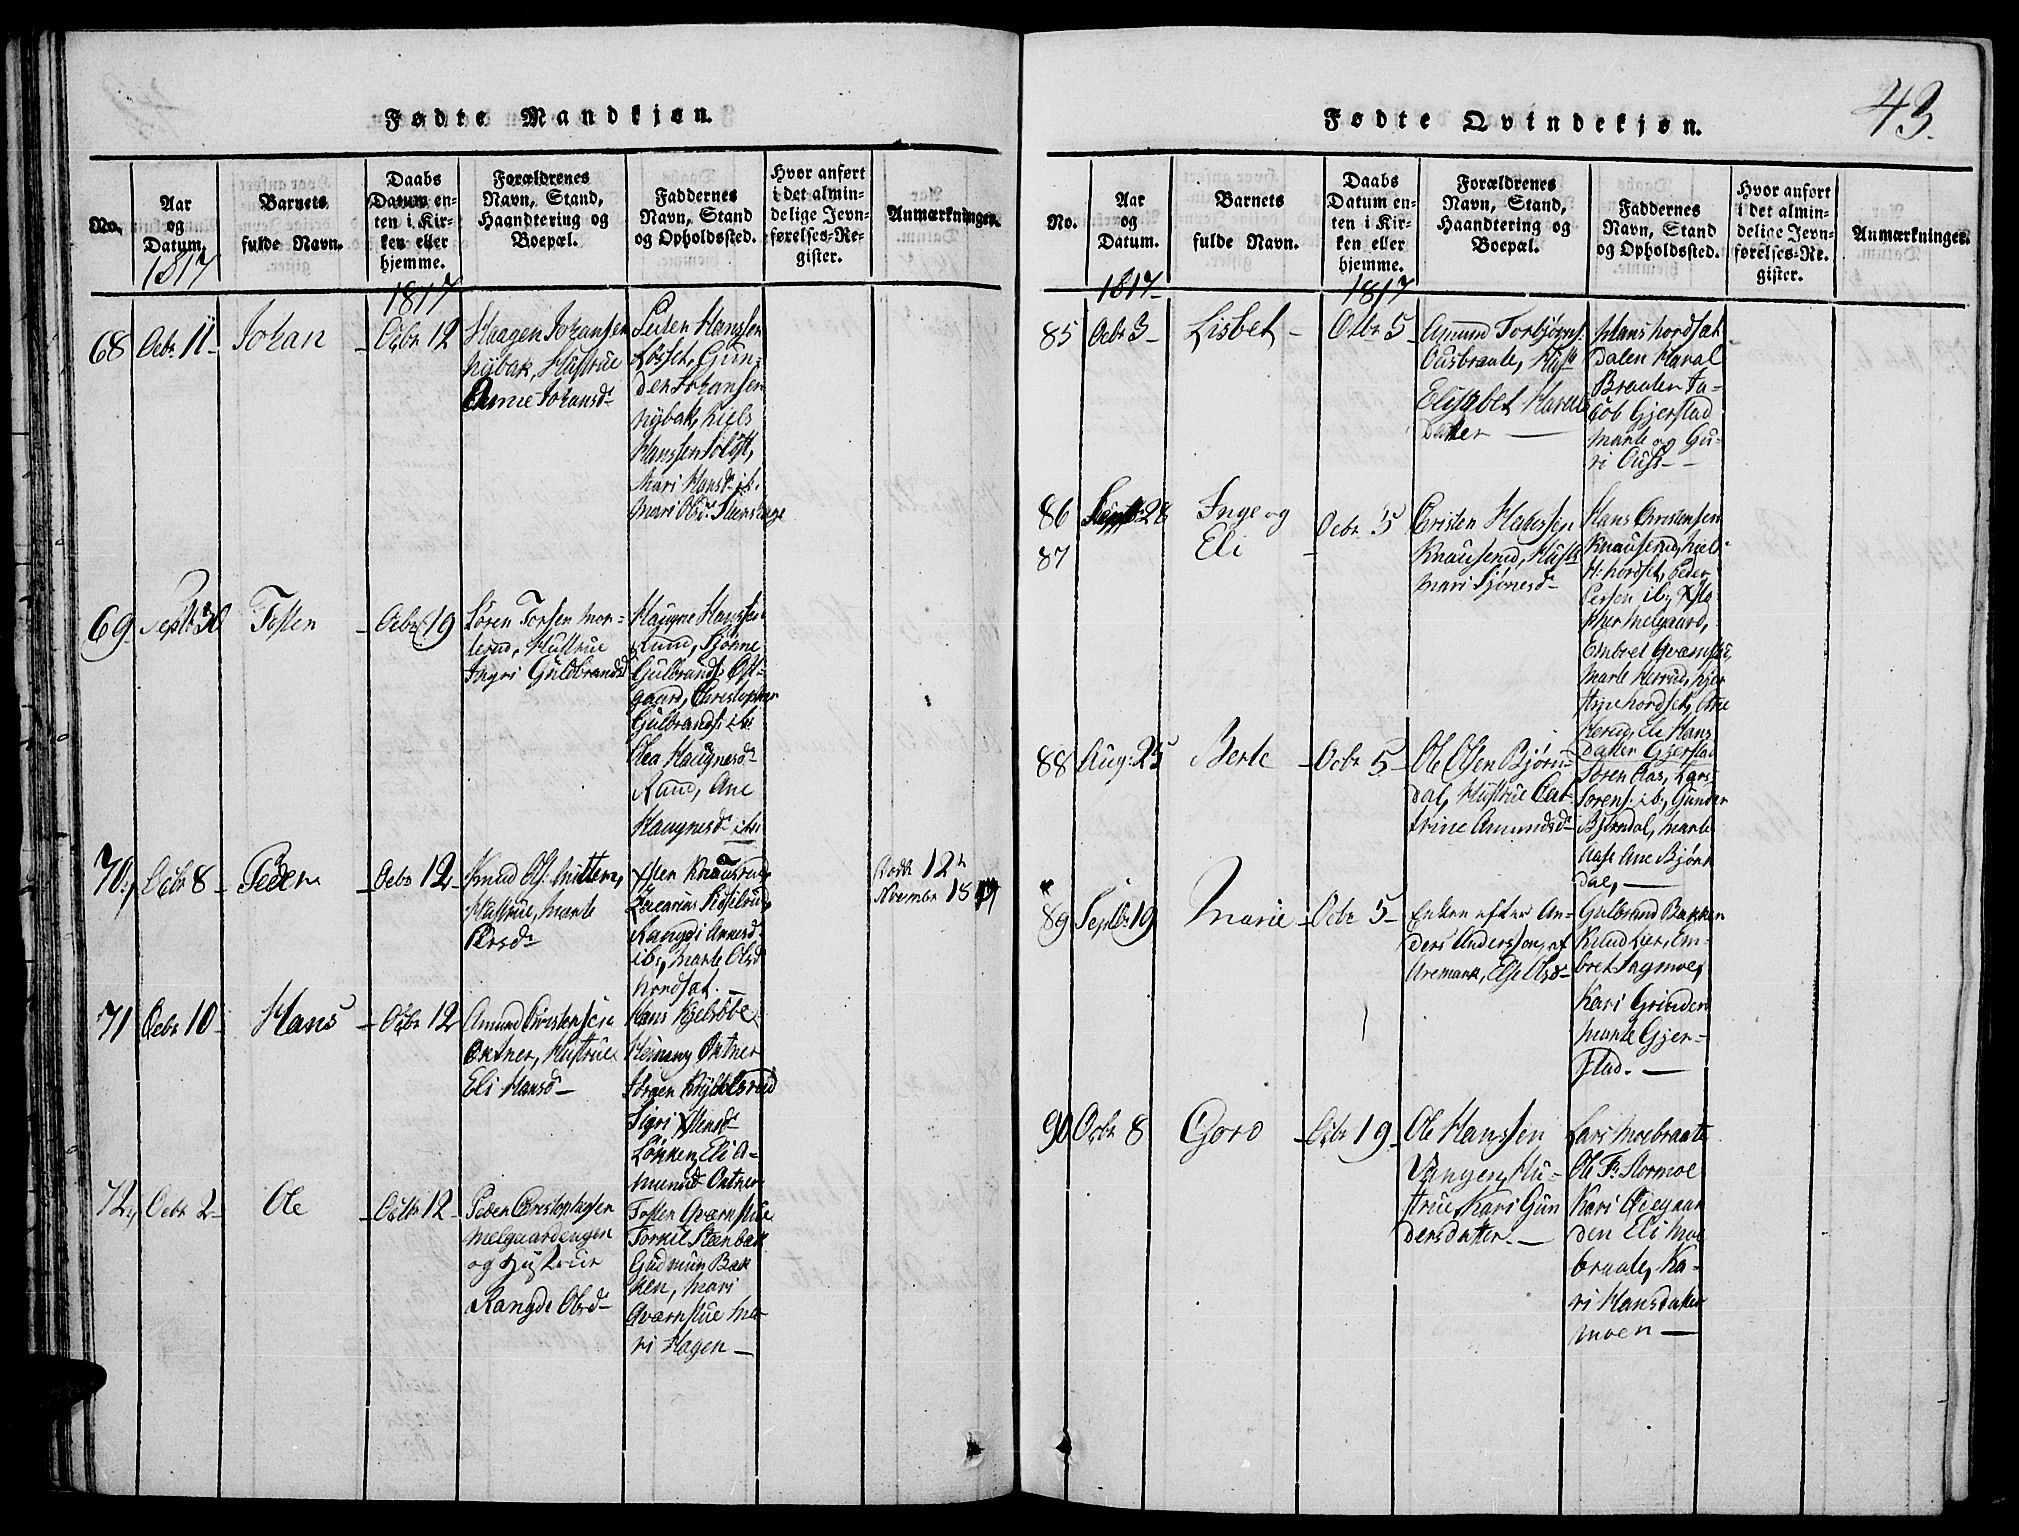 Fødte Mandkjøn.
No.
Aar
og
Datum.
1817
Barnets
fulde Navn.
Daabs
Datum en-
ten i Kir-
ken eller
hjemme.
1817
Forældrenes
Navn, Stand,
Haandtering og
Boepæl.
Faddernes
Navn, Stand
og Opholdssted.
Hvor anført
i det almin-
delige Jevn-
førelses-Re-
gister.
Anmærkninger.
68
Ocbr 11
Johan
Ocbr 12
Haagen Johansen
Nybak, Hustrue
Anne Johansd
Hansen
Løsset, Gun-
der Johansen
Nybak, Niels
Hanssen
Mari Hansd ib.
Mari Olsd
69
Septbr 30
Tosten
Ocbr 19
Sören Torsen Mor-
terud, Hustrue
Ingri Guldbrandsd
Haugne Hanssen
Rund, Sjönne
Gulbrands
gaard, Christopher
Gulbrands ib.
Olea Haugnesd
Rund, Ane
Haugnesd ib.
70
Ocbr 8
Peder
Ocbr 12
Knud Ols:
Hustrue, Marte
Persd
Knausrud
Zacarias
Rangdi
ib., Marte Olsd
Nordsæt.
Dödt 12
November 1817
71
Ocbr 10
Hans
Ocbr 12
Amund Christensen
Oxtner, Hustrue
Eli Hansd
Hans
Heming Oxtner
Jörgen
Sigri
Løkken, Eli A-
munsd Oxtner
72
Ocbr 2
Ole
Ocbr 12
Peder Christophersen
Melgaardengen
og Hustrue
Rangdi Olsd
Tosten Qværnstue
Torkil Steenbak
Gudmun Bak
ken, Mari
Qværnstue Ma-
ri Hagen
Fødte Qvindekjøn.
43.
No.
Aar
og
Datum.
1817
Barnets
fulde Navn.
Daabs
Datum en-
ten i Kir-
ken eller
hjemme.
1817
Forældrenes
Navn, Stand,
Haandtering og
Boepæl.
Faddernes
Navn, Stand
og Opholdssted.
Hvor anført
i det almin-
delige Jevn-
førelses-Re-
gister.
Anmærkninger.
85
Ocbr 3
Lisbet
Ocbr 5
Amund Torbjørns:
Ousbraate, Hust
Elisabet Haral
datter
Hans Nordsæt
Dalen Haral
Braaten Ja-
cob Gjerstad
Marte og Gu-
ri
86
87
Septbr 28
Inge og
Eli
Ocbr 5
Cristen Hanssen
Knauserud, Hustr
Mari Sjönesd
Hans Christensen
Knauserud, Niels
H: Nordset, Peder
Persen ib., Xsto
pher Melgaard,
Embret
Marte Herrud, Kjer
stine Nordset, Ane
Herud, Eli Hans
datter Gjerstad
88
Aug: 25
Berte
Ocbr 5
Ole Olsen Björn-
dal, Hustrue Cat-
trine Amundsd
Sören Aas, Lars
Sörens: ib., Gunder
Björndal, Marte
Aase Ane Bjönn
dal,
89
Septbr 19
Marie
Ocbr 5
Enken efter An-
ders Anderssön, af
Aremark, Else Olsd
Gulbrand Bakken
Knud Lier, Em-
bret Sagmoe,
Kari Grinden
Marte Gjer-
stad.
90
Ocbr 8
Goro
Ocbr 19
Ole Hanssen
Vangen, Hu-
strue Kari Gun
dersdatter
Lars Moebraate
Ole P: Stormoe
Kari Øiegaar
den Eli Moe
braate, Ka-
ri Hansdatter
Moen